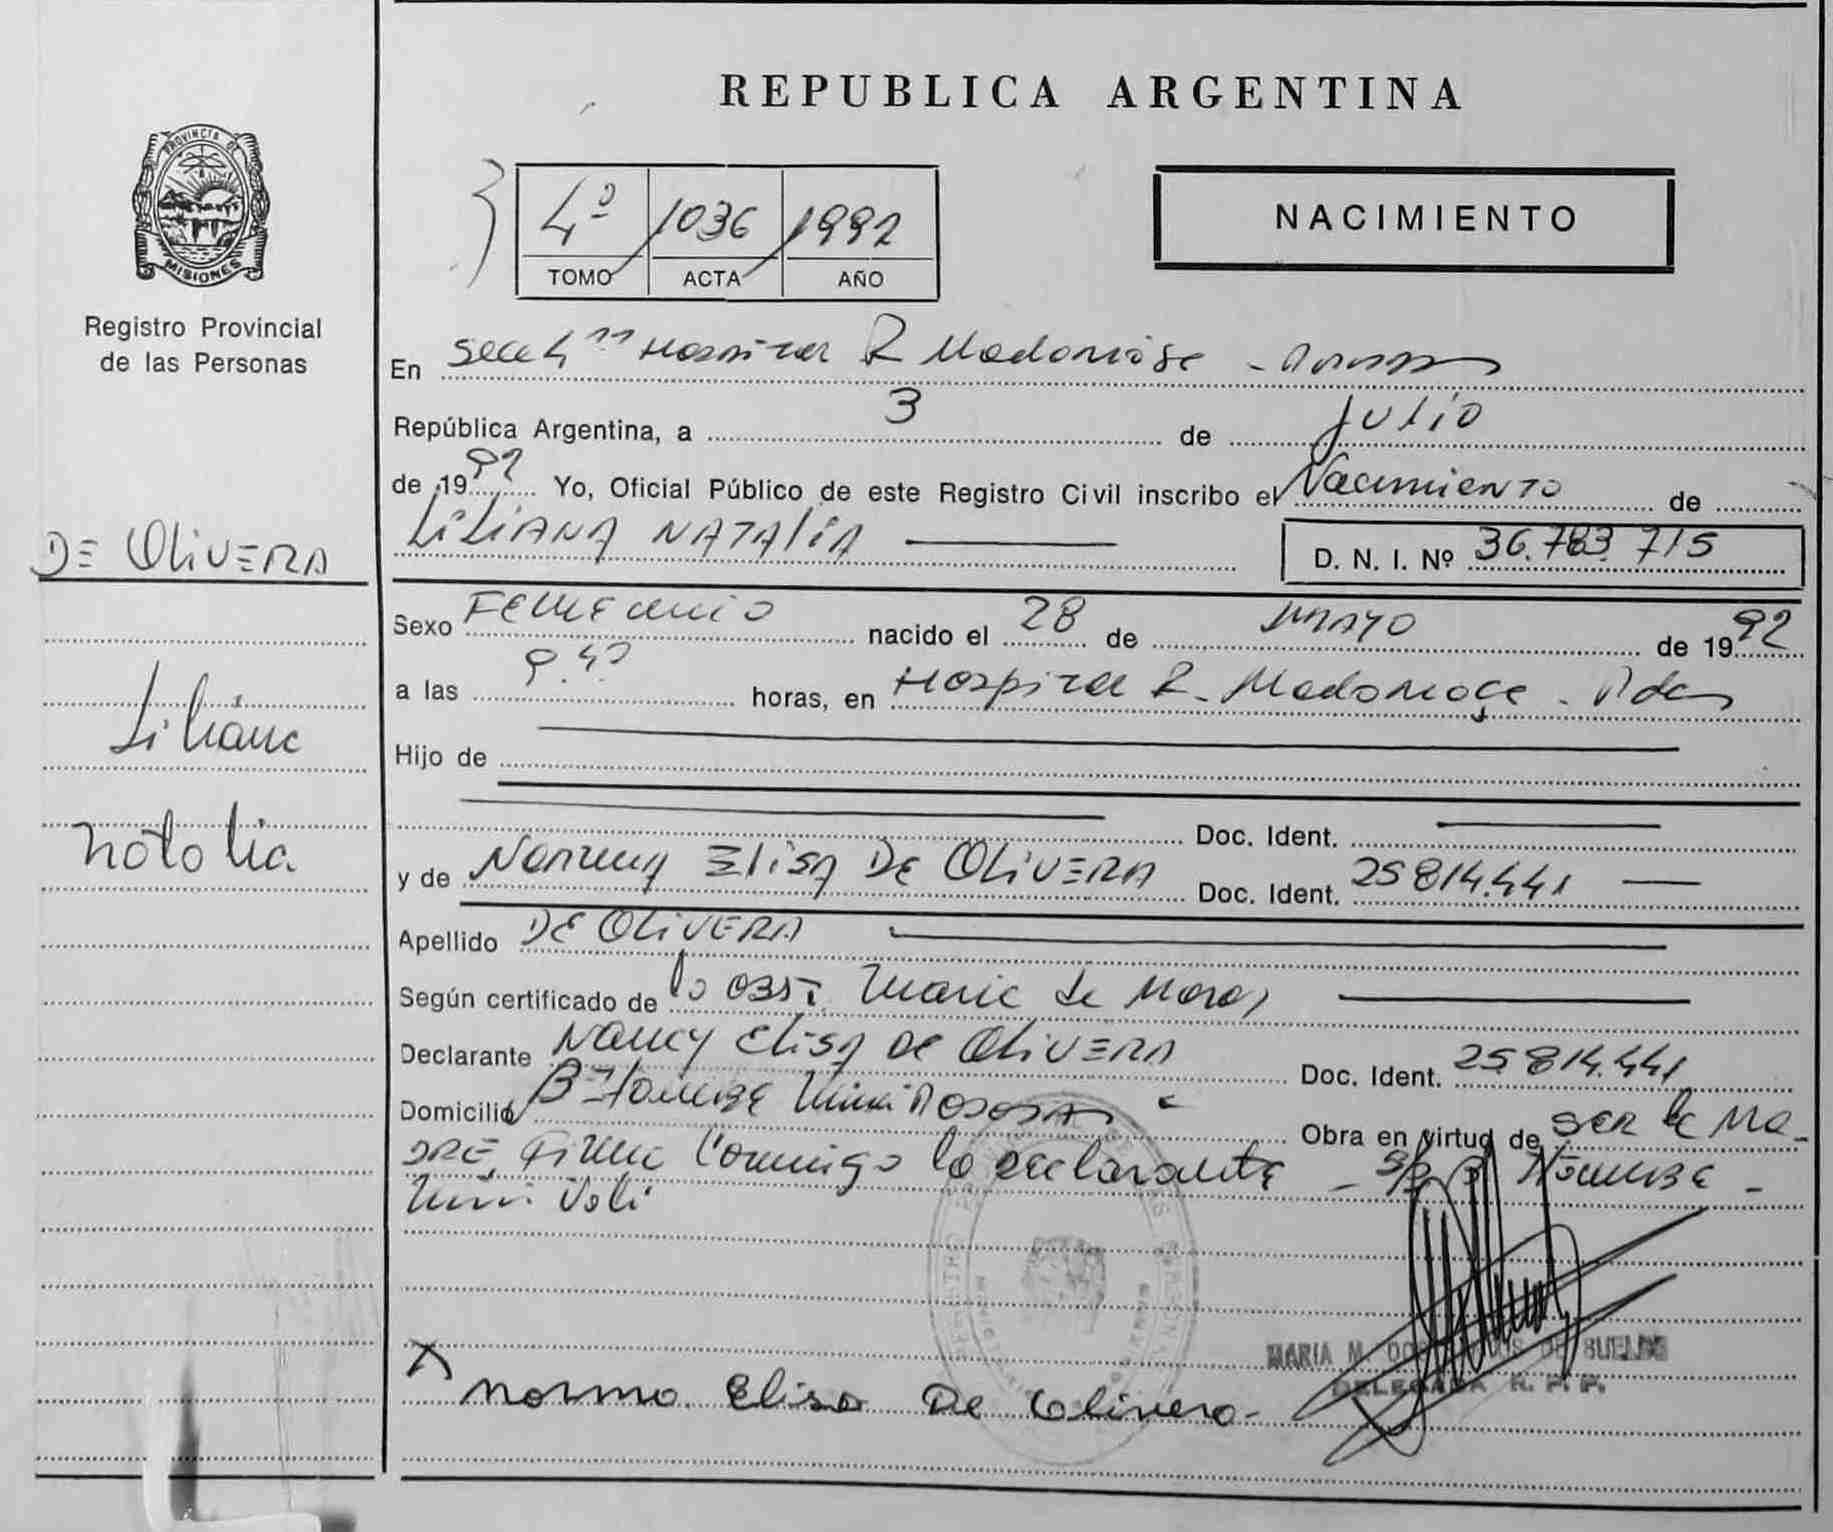 REPUBLICA ARGENTINA
PROVINCIA DE
MISIONES
Registro Provincial
de las Personas
4º 1036 1992
TOMO ACTA AÑO
NACIMIENTO
En Hospital R Madariaga -
República Argentina, a 3 de Julio
de 1992 Yo, Oficial Público de este Registro Civil inscribo el Nacimiento de
LILIANA NATALIA
D. N. I. Nº 36.783 715
DE OLIVERA
Liliana
Natalia
Sexo Femenino nacido el 28 de MAYO de 1992
a las 9.42 horas, en Hospital R. Madariaga - Pdas
Hijo de
Doc. Ident.
y de Norma ELISA DE OLIVERA Doc. Ident. 25 814.441
Apellido DE OLIVERA
Según certificado de la obst. Maria de
Declarante Nancy ELISA DE OLIVERA Doc. Ident. 25 814.441
Domicilio Bº Posadas Obra en virtud de ser la ma-
dre, Firma Conmigo la declarante -
X Norma Elisa De Olivera-
MARIA M. DE BUELDS
DELEGADA R. P. P.